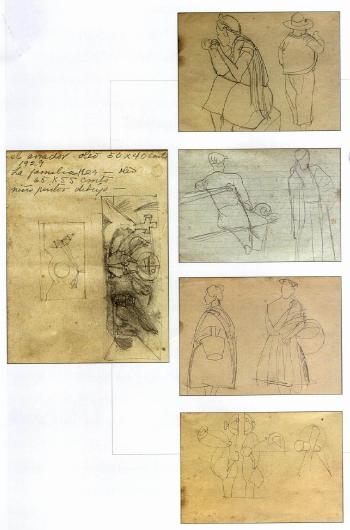 el arador - oleo 50 x 40 cents
1929
La familia Rex - oleo
65 x 55 cents
niño pintor dibujo -